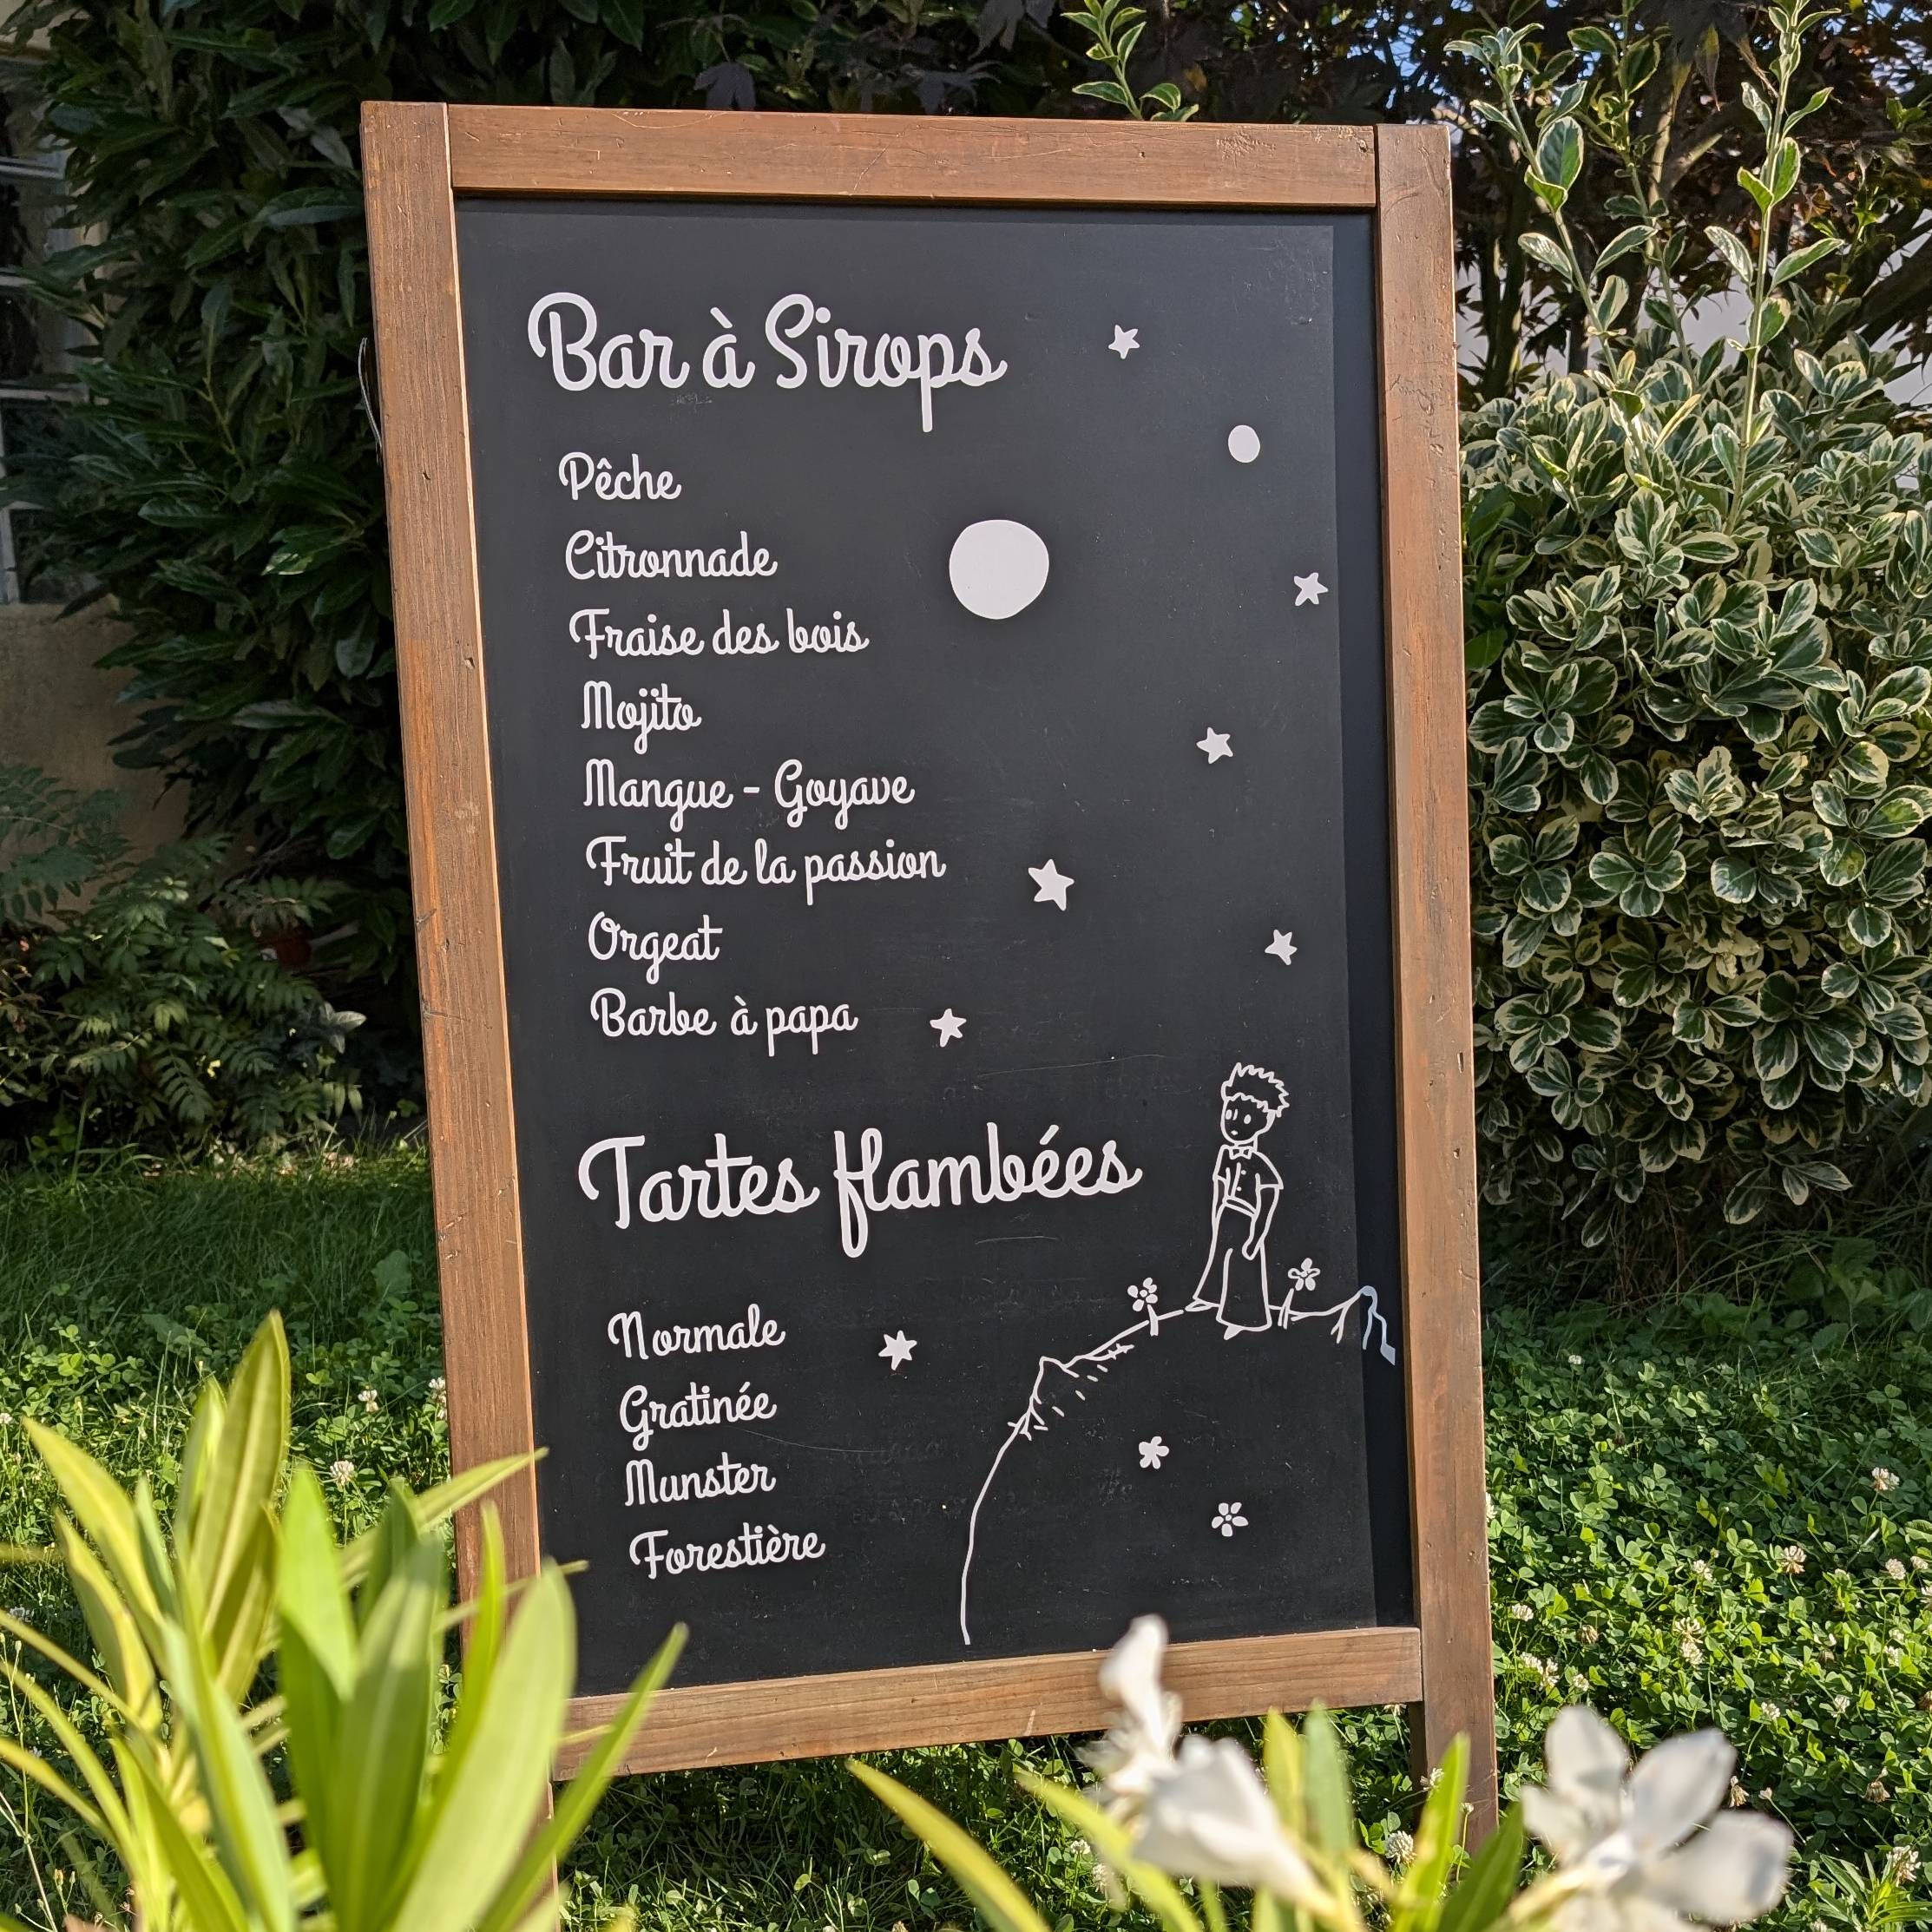 Bar à Sirops
Pêche
Citronnade
Fraise des bois
Mojito
Mangue - Goyave
Fruit de la passion
Orgeat
Barbe à papa
Tartes flambées
Normale
Gratinée
Munster
Forestière